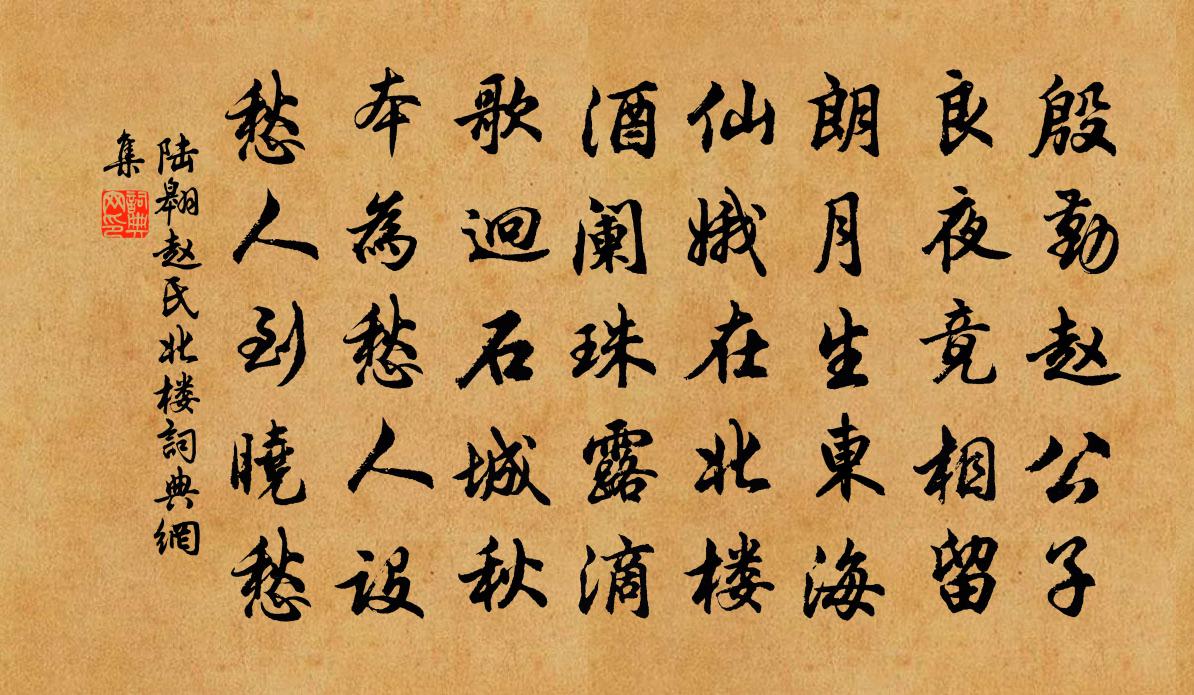 殷勤赵公子
良夜竟相留
朗月生東海
仙娥在北楼
酒阑珠露滴
歌迥石城秋
本為愁人設
愁人到曉愁
陆翱赵氏北楼詞典網
集
詞典网印